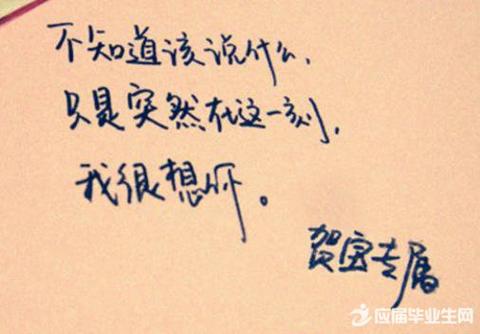 不知道该说什么，
只是突然在这一刻，
我很想你。
贺宝专属
应届毕业生网